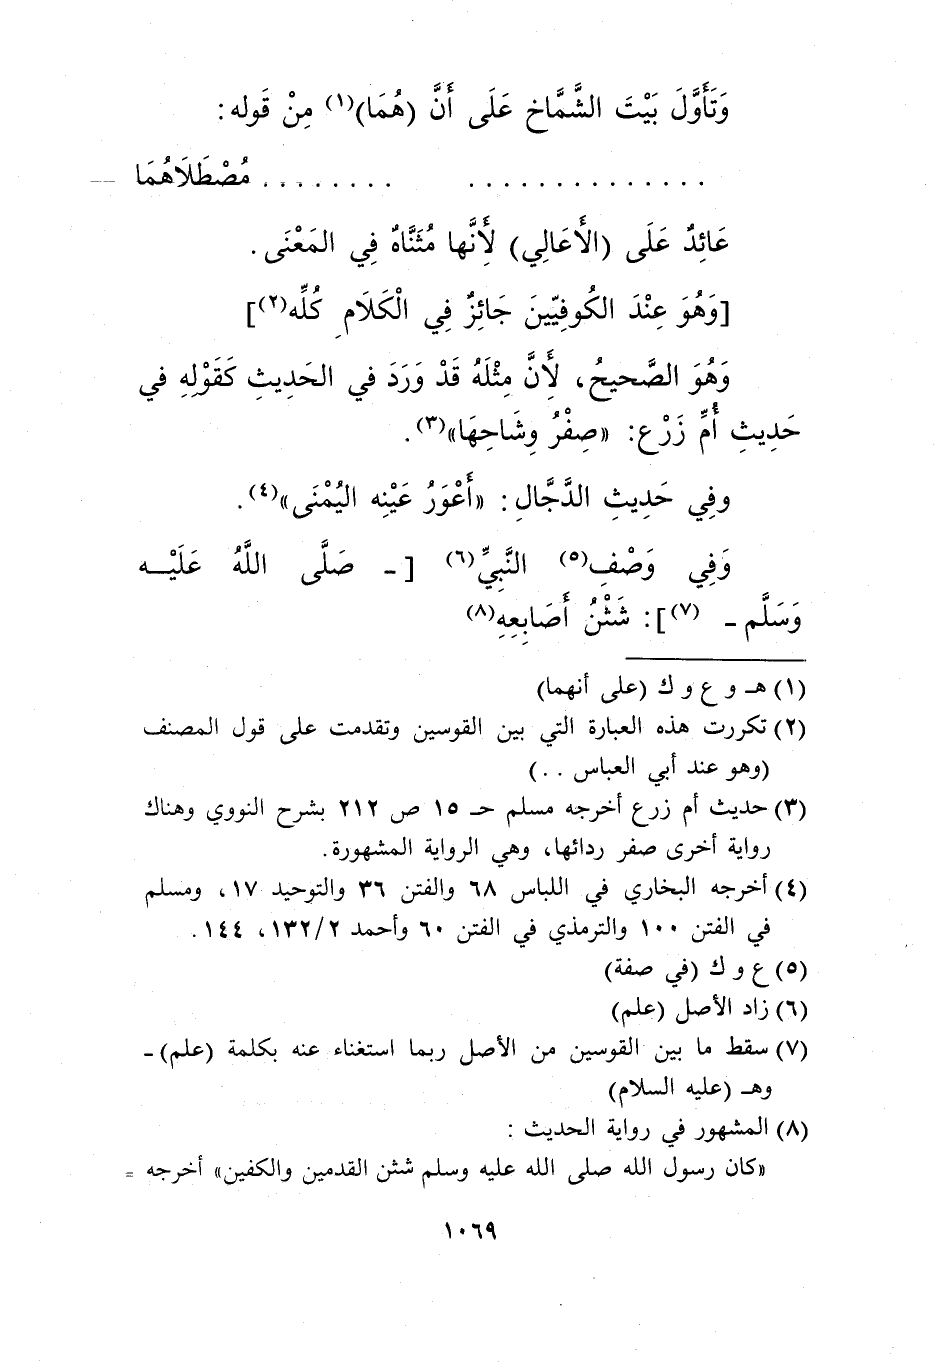 وَتَأَوَّلَ بَيْتَ الشَّمَّاخِ عَلَى أَنَّ (هُمَا)(١) مِنْ قَوله :
. . . . . . . . . . . . . . . . . . . . . . مُصْطَلَاهُمَا
عَائِدٌ عَلَى (الأَعَالِي) لِأَنَّها مُثَنَّاهٌ فِي المَعْنَى .
[وَهُوَ عِنْدَ الكُوفِيّينَ جَائِزٌ فِي الْكَلَامِ كُلِّه(٢)]
وَهُوَ الصَّحيحُ، لِأَنَّ مِثْلَهُ قَدْ وَرَدَ في الحَدِيثِ كَقَوْلِهِ في
حَدِيثِ أُمِّ زَرْعٍ: «صِفْرُ وِشَاحِهَا»(٣).
وفِي حَدِيثِ الدَّجَّالِ : «أَعْوَرُ عَيْنِه اليُمْنَى»(٤).
وَفِي وَصْفِ(٥) النَّبِيِّ(٦) [ـ صَلَّى اللَّهُ عَلَيْـــه
وَسَلَّم ـ (٧)]: شَثْنُ أَصَابِعِهِ(٨)
(١) هـ و ع و ك (على أنهما)
(٢) تكررت هذه العبارة التي بين القوسين وتقدمت على قول المصنف
(وهو عند أبي العباس . .)
(٣) حديث أم زرع أخرجه مسلم حـ ١٥ ص ٢١٢ بشرح النووي وهناك
رواية أخرى صفر ردائها، وهي الرواية المشهورة.
(٤) أخرجه البخاري في اللباس ٦٨ والفتن ٣٦ والتوحيد ١٧، ومسلم
في الفتن ١٠٠ والترمذي في الفتن ٦٠ وأحمد ١٣٢/٢، ١٤٤ .
(٥) ع و ك (في صفة)
(٦) زاد الأصل (علم)
(٧) سقط ما بين القوسين من الأصل ربما استغناء عنه بكلمة (علم) ـ
وهـ (عليه السلام)
(٨) المشهور في رواية الحديث :
«كان رسول الله صلى الله عليه وسلم شثن القدمين والكفين» أخرجه =
١٠٦٩